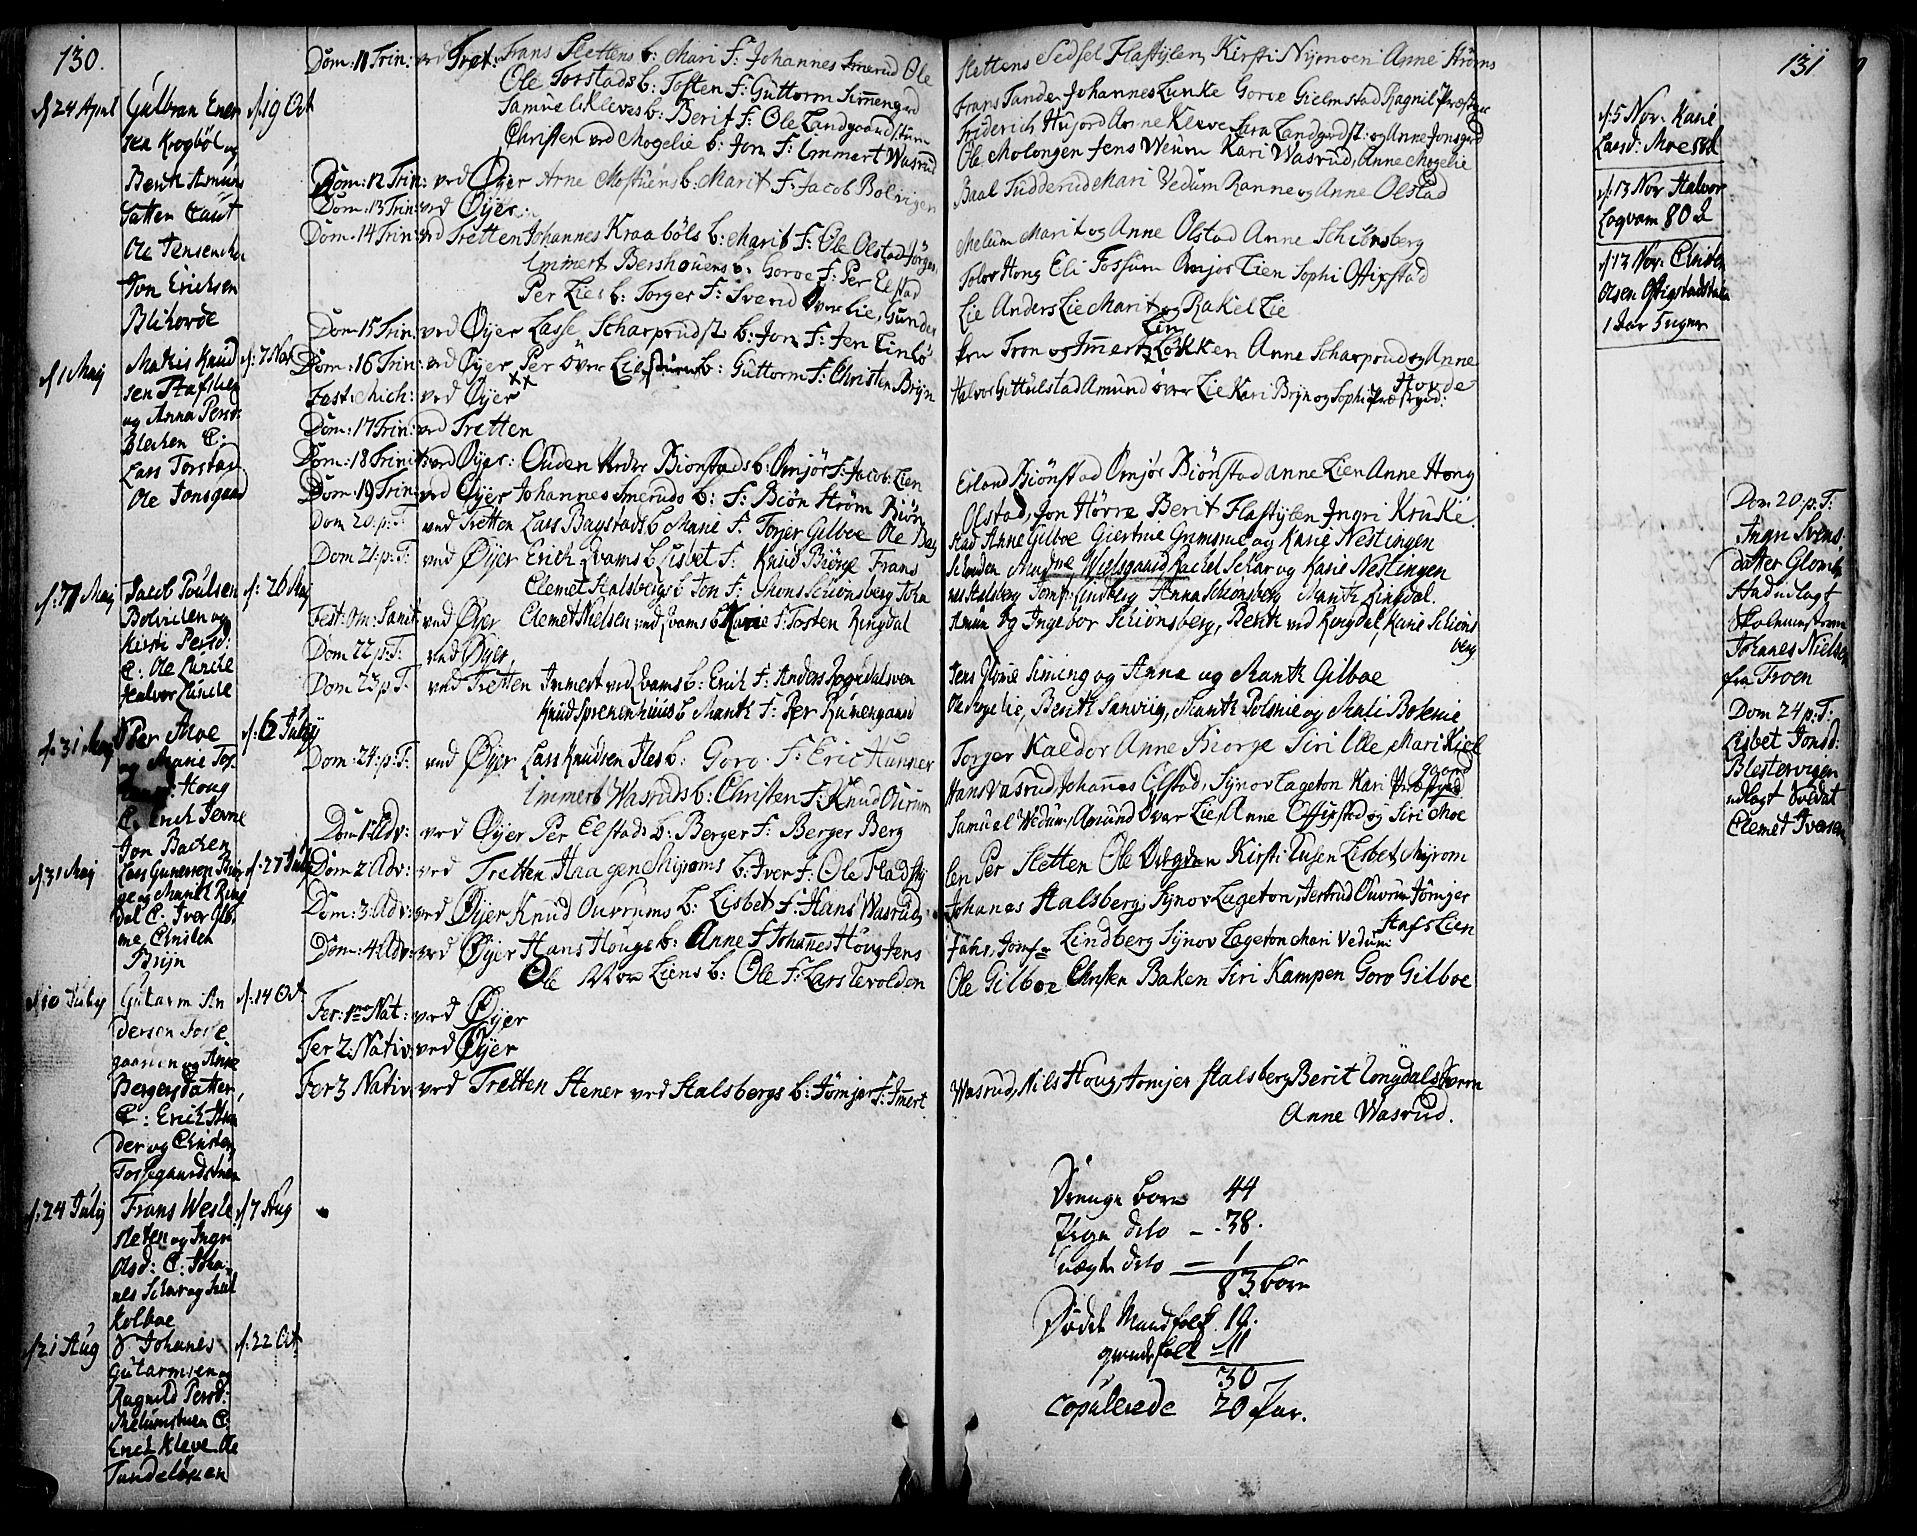 130.
d 24 April
Gulbran Ener
sen Krogböl og
Berit Asmuns
datten Caut
Ole Jensen
Jon Erichsen
Blihovde
d: 19 Oct
d 1 Maij
Mathis Knud
sen Stafsberg
og Anna Persd:
Blechen C:
Lars Torstad
Ole Jonsgaard
d: 7 Nov
d: 17 Maij
Jacob Poulsen
Bolvilen og
Kirsti Persd:
C: Ole Lunche
Halvor Lunche
d: 26 Maij
d: 31 Maij
Per Moe
og Marie Tos
Houg
C: Erich Jevne
Jon Bachen
d: 6 Julij
d 31 Maij
Lars Gunersen Biör
ge og Marit Ring
dal C. Iver
me, Christen
Brijn
d: 27 Julij
d 10 July
Gutarm An
dersen Torse
gaarden og Anne
Bergersdatter,
C: Erich
der og Christen
Torsegaardstuen
d. 14 Oct
d: 24 Julij
Frans Wesle
Sleten og Ingri
Olsd: C. Joha
nes
Kolboe
d 7 Aug
d 21 Aug
Johanes
Gutarmsen og
Ragnild Persd:
Melumstuen C.
Erich Kleve Ole
Tandeløken
d: 22 Oct
Dom: 11 Trin: ved Tret: Frans Slettens b: Mari F: Johannes Smerud Ole
Ole Torstads b: Tosten F: Guttorm Simengrd
Samuel Kleves b: Berit F: Ole Landgaardstuen
Christen ved Mogelie b: Jon F: Immert Wasrud
Dom: 12 Trin: ved Øyer Arne Mostuens b: Marit F: Jacob Bolvigen
Dom: 13 Trin: ved Øyer:
Dom: 14 Trin: ved Tretten Johannes Kraabøls b: Marit F: Ole Olstad Jørgen
Immert Bershouens b: Goroe F: Per Elstad
Per Lies b: Torger F: Svend Over Lie, Gunder
Dom 15 Trin: ved Øyer Lasse Scharprudst b: Jon F: Jen Linlö
Dom: 16 Trin: ved Øyer Per över Liestuen b: Guttorm F: Christen Brijn
Fest: Mich: ved Øyer
Dom: 17 Trin: ved Tretten
Dom: 18 Trinit: ved Øyer: Ouden Neder Bionstads b: Omjör F: Jacob: Lien
Dom: 19 Trin: ved Øyer Johannes Smeruds b: F: Biön Ström Biön
Dom 20: p: T: ved Tretten Lars Baystads b Marie F. Torjer Gilboe Ole Bay
Dom 21: p: T: ved Øyer Erich Qvams b Lisbet F: Knud Biörge Frans
Clemet Stalsbergs b Jon F: Mons Schionsberg John
Fest: Om: Sanct: ved Øyer Clemet Nielsen ved Qvams b Karie F: Torsten Ringdal
Dom 22 p: T: ved Øyer
Dom 23 p T. ved Tretten Immert ved Qvams b: Erich F: Anders Rogndalsven
Knud Sprenenhuus b Marit F: Per Runengaard
Dom: 24: p: T: ved Øyer Lars Knudsen Iles b: Goro F: Eric Hunner
Immert Wasruds b: Christen F: Knud Ourum
Dom 1 Adv: ved Øyer Per Elstads b: Berger F: Berger Berg
Dom: 2 Adv: ved Tretten Haagen Myroms b: Iver F: Ole Fladsty
Dom: 3: Adv: ved Øyer Knud Ouvrums b: Lisbet F: Hans Wasrud,
Dom: 4 Adv: ved Øyer Hans Hougs b: Anne F Johannes Houg Jens
Ole Mor Liens b: Ole F: Lars Tevolden
Fer: 1me Nat: ved Øyer
Fer 2: Nativ: ved Øyer
Fer 3 Nativ: ved Tretten Stener ved Stalsbergs b: Tömjer F: Imert
131
Slettens Sedsel Flastylen Kirsti Nymoen Anne Ströms
Frans Tande Johannes Lunke Goroe Gielmstad Ragnil Præstgrd
Friderich Hujord Anne Kleve Sara Landgrdst: og Anne Jonsgrd
Ole Molongen Jens Weum Kari Wasrud, Anne Mogelie
Baal Tudderud Mari Vedum Ranne og Anne Olstad
Melum Marit og Anne Olstad Anne Schiönsberg
Tolov Hong Eli Fossum Omjör Lien Sophi Offigstad
Lie Anders Lie Marit og Rakel Lie
Lin
pen Tron og Immert Lökken Anne Scharprud og Anne
Hovde
Halvor Gittulstad Amund över Lie Kari Brijn og Sophi Præstgrd:
Erland Biönstad Omjör Biönstad Anne Lien Anne Hong
Olstad, Jon Hörre Berit Flastylen Ingri Kruke
stad Anne Gilboe Giertrue Grimsrue og Karie Nestingen
Slenden Madme Wielsgaard Rachel Schar og Karie Nestingen
nes Stalsberg Jomf: Lindberg Anna Schionsberg Marit Ringdal.
Amun og Ingebor Schiönsberg, Berit ved Ringdal, Karie Schions
berg
Jens Glorie Siming og Anna og Marit Gilboe
Ole Rogelie, Berit Sanviig, Marit Polonie og Mali Bolenie
Torger Kaldor Anne Biorge Siri Ille Mari Kiel
gaard
Hans Vasrud, Johannes Elstad, Synov Lageton Kari Præstgrd
Samuel Wedum, Amund Over Lie, Anne Offigstad og Siri Moe
len Per Sletten Ole Kirsti Tusen Lisbet Myrom
Johanes Stalsberg, Synov Lageton, Jertrud Ouvrum Tömjer
Stafs Lien
Fahr, Jomfr Lindberg Synov Lageton Mari Vedum
Ole Gilboe Christen Baken Siri Kampen Goro Gilboe
Wasrud, Nils Houg, Tomjer Stalsberg Berit Longdals
Anne Wasrud.
Drenge börn 44
Pige dito - 38.
uægte dito - 1
83 börn
Döde Mandfolk 19.
qvindfolk 11
30
Copulerede 20 Par.
d: 5 Nov. Karie
Larsd: Moe
d: 13 Nov Halvor
Logvam 80 a
d 13 Nov: Christen
Olsen Ofigstadstuen
1 Aar 5 uger
Dom 20: p: T:
Ingri Svens
datter Glom
stad udlagt
Skolemesteren
Johanes Nielsen
fra Troen
Dom 24 p: T:
Lisbet Jonsd:
Blestervigen
udlagt Soldat
Clemet Iversen